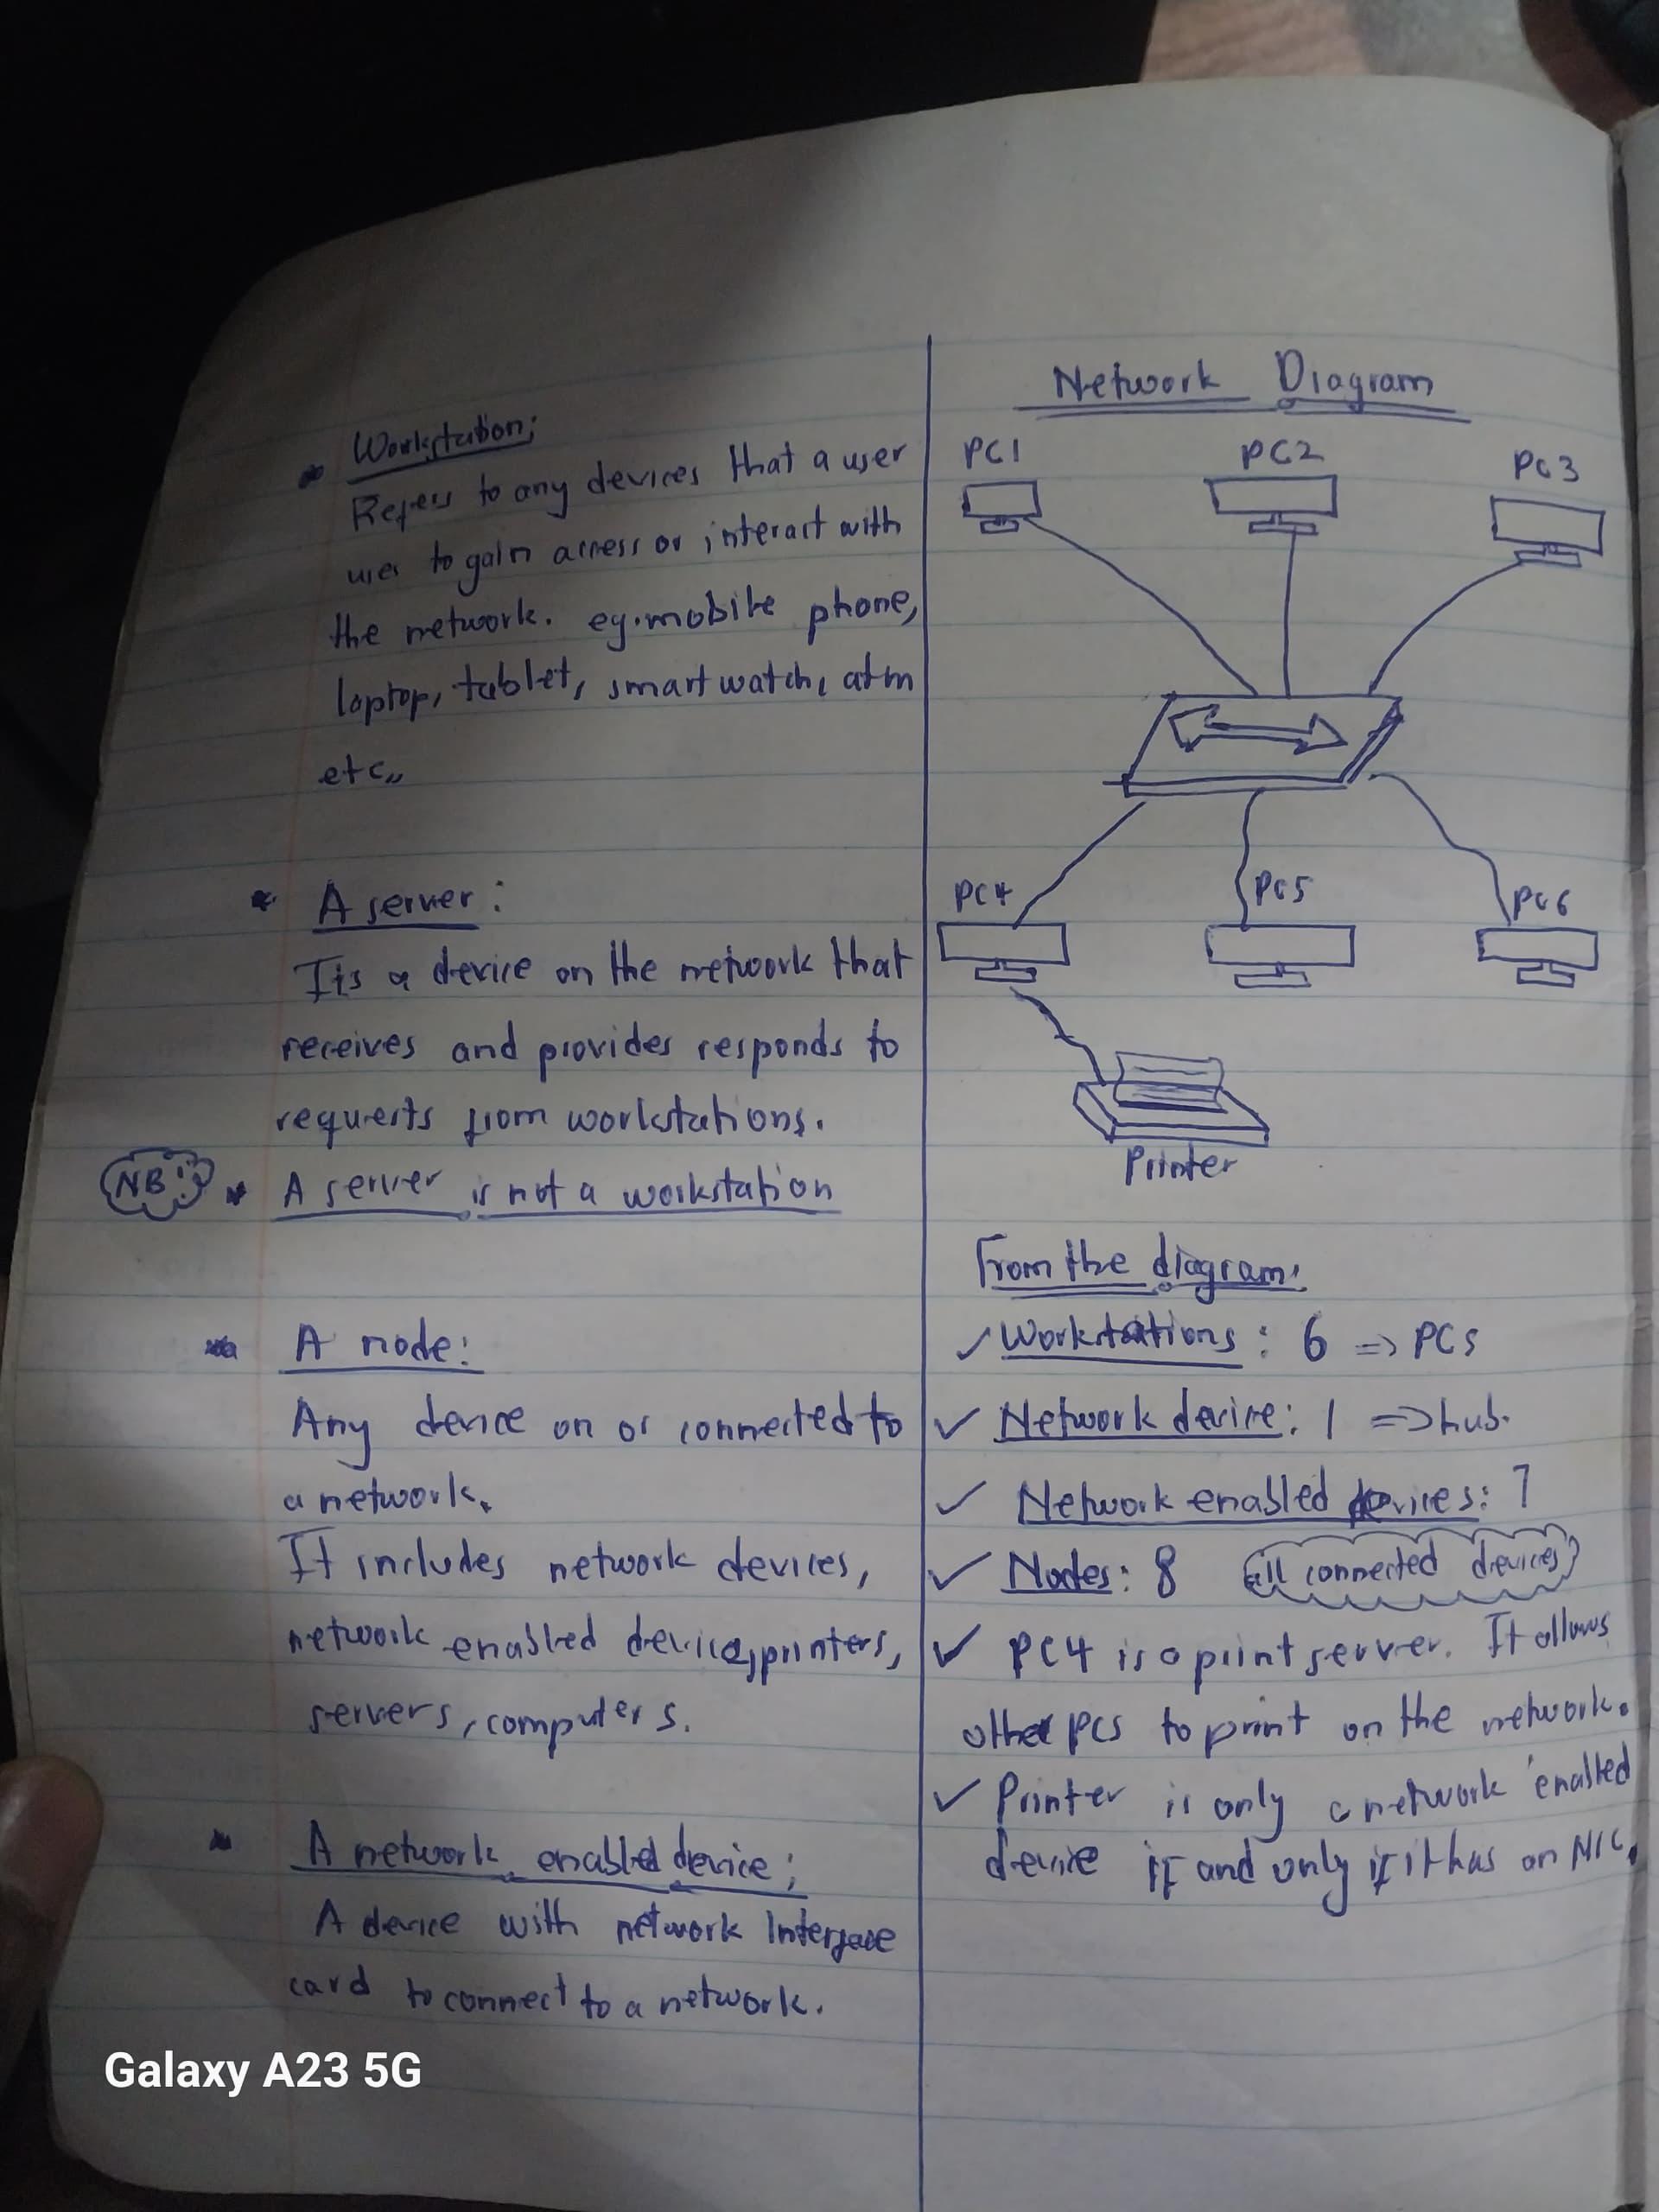 Workstation;
Refers to any devices that a user
uses to gain access or interact with
the network. eg. mobile phone,
laptop, tablet, smart watch, atm
etc,,
A server:
Its a device on the network that
receives and provides responds to
requests from workstations.
NB:
A server is not a workstation
A node:
Any device on or connected to
a network.
It includes network devices,
network enabled device, printers,
servers, computers.
A network enabled device;
A device with network Interface
card to connect to a network.
Network Diagram
PC1 PC2 PC3
PC4 PC5 PC6
Printer
From the diagram:
Workstations: 6 => PCs
Network device: 1 => hub.
Network enabled devices: 7
Nodes: 8 all connected devices
PC4 is a print server. It allows
other PCs to print on the network.
Printer is only a network enabled
device if and only if it has an NIC.
Galaxy A23 5G